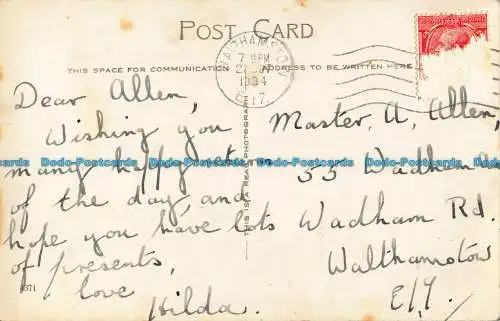 POST CARD
WALTHAMSTOW
7 15 PM
1934
E.17.
THIS SPACE FOR COMMUNICATION
ADDRESS TO BE WRITTEN HERE
THIS IS A REAL PHOTOGRAPH
Dear Allen,
Wishing you
many happy returns
of the day, and
hope you have lots
of presents,
love
Hilda.
Master. A. Allen,
55 Wadham
Wadham Rd.
Walthamstow
E17.
Dodo-Postcards Dodo-Postcards Dodo-Postcards Dodo-Postcards Dodo-Postcards